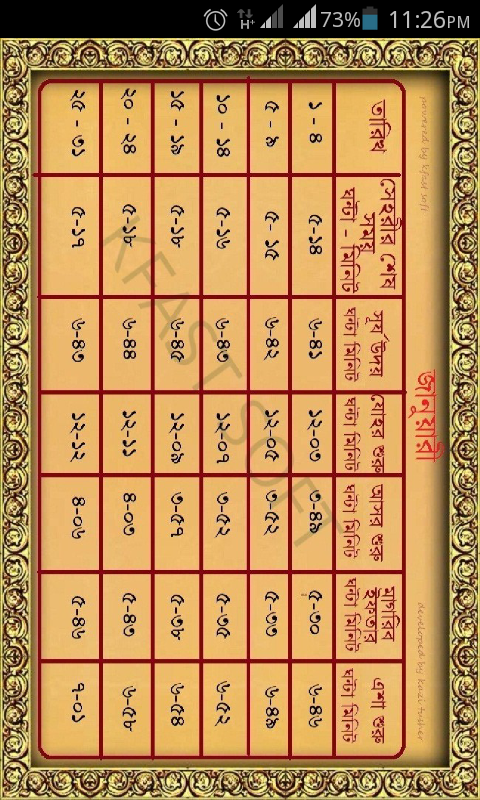 73% 11:26PM
powered by kfast soft
developed by Kazi tusher
জানুয়ারী
তারিখ সেহরীর শেষ সময় ঘন্টা - মিনিট সূর্য উদয় ঘন্টা মিনিট যোহর শুরু ঘন্টা মিনিট আসর শুরু ঘন্টা মিনিট মাগরিব ইফতার ঘন্টা মিনিট এশা শুরু ঘন্টা মিনিট
১ - ৪ ৫-১৪ ৬-৪১ ১২-০৩ ৩-৪৯ ৫-৩০ ৬-৪৬
৫ - ৯ ৫- ১৫ ৬-৪২ ১২-০৫ ৩-৫২ ৫-৩৩ ৬-৪৯
১০ - ১৪ ৫-১৬ ৬-৪৩ ১২-০৭ ৩-৫২ ৫-৩৫ ৬-৫২
১৫ - ১৯ ৫-১৮ ৬-৪৫ ১২-০৯ ৩-৫৭ ৫-৩৮ ৬-৫৪
২০ - ২৪ ৫-১৮ ৬-৪৪ ১২-১১ ৪-০৩ ৫-৪৩ ৬-৫৮
২৫ - ৩১ ৫-১৭ ৬-৪৩ ১২-১২ ৪-০৬ ৫-৪৬ ৭-০১
KFAST SOFT